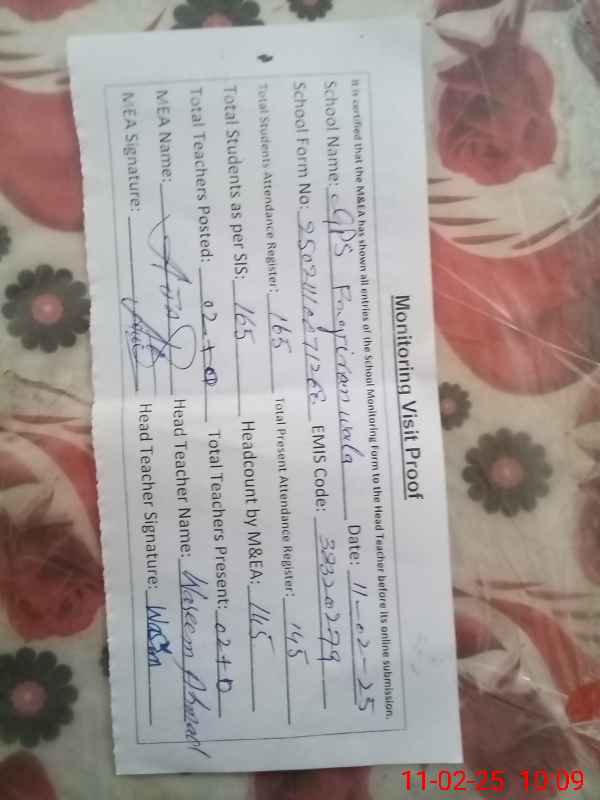 Monitoring Visit Proof
It is certified that the M&EA has shown all entries of the School Monitoring Form to the Head Teacher before its online submission.
School Name: GPS wala Date: 11-02-25
School Form No: EMIS Code: 33320279
Total Students Attendance Register: 165 Total Present Attendance Register: 145
Total Students as per SIS: 165 Headcount by M&EA: 145
Total Teachers Posted: 02+0 Total Teachers Present: 02+0
MEA Name: Head Teacher Name: Waseem Ahmad
MEA Signature: Head Teacher Signature: Wasim
11-02-25 10:09